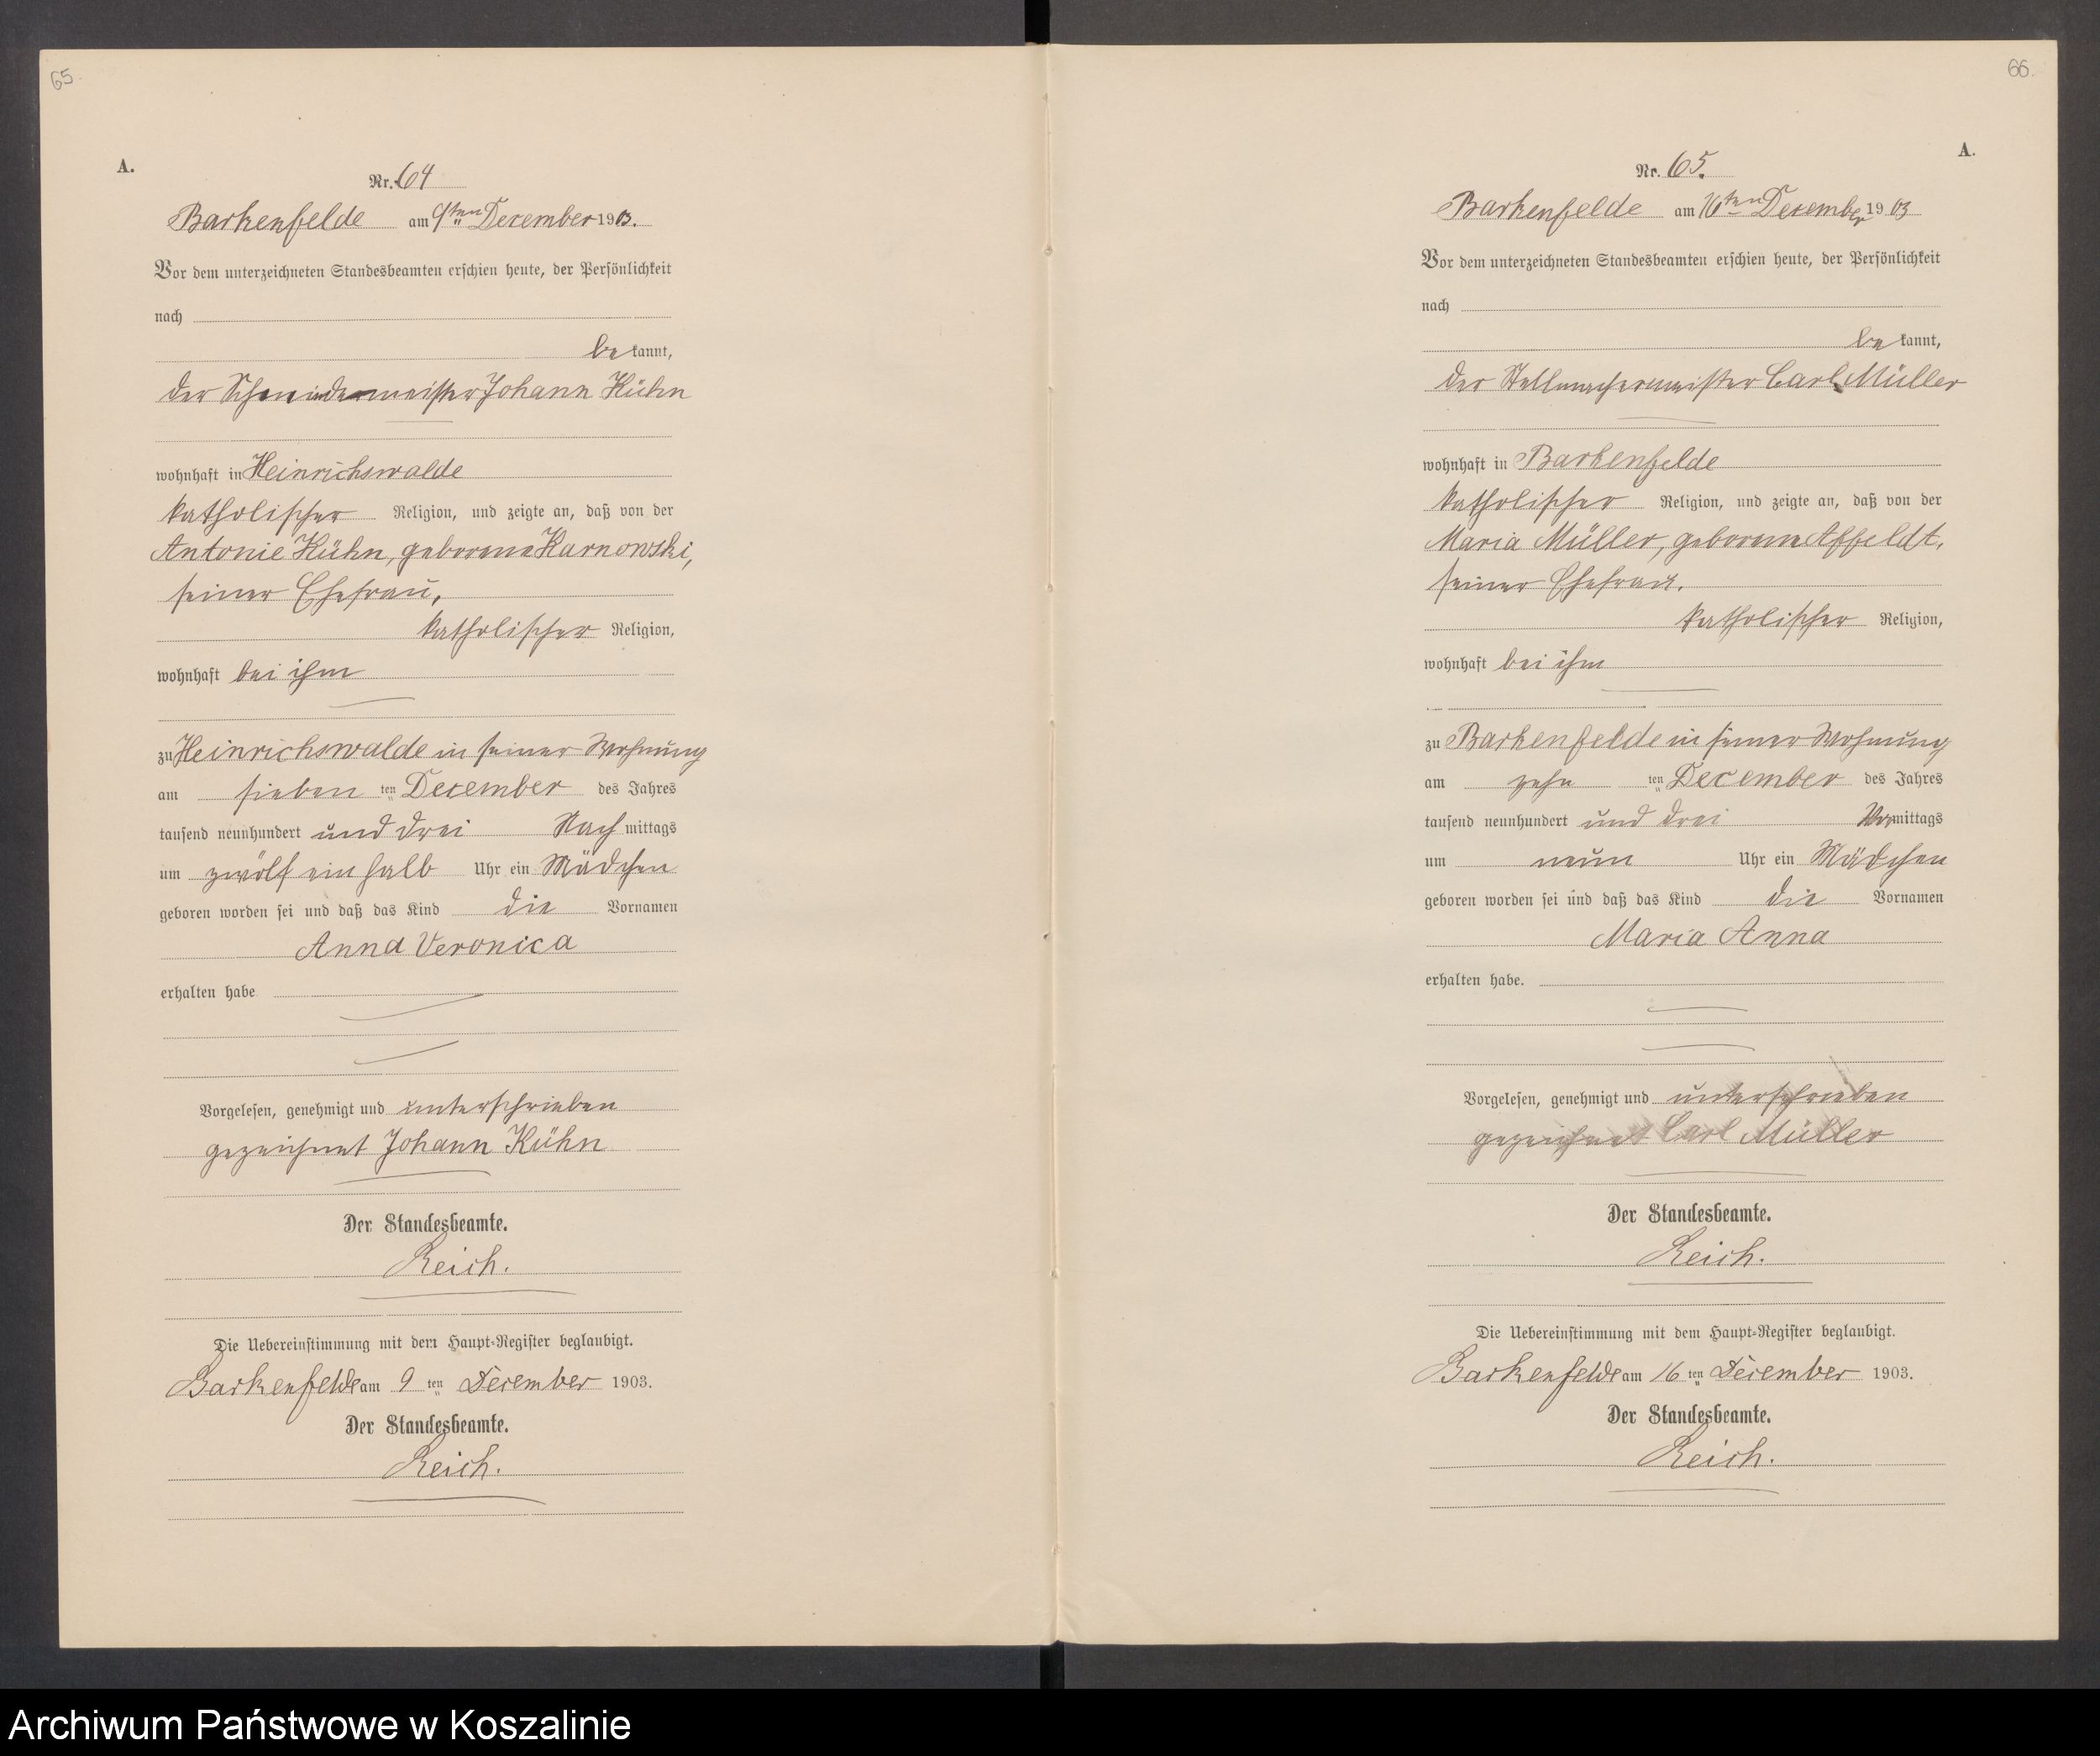 65.
A.
Nr. 64
Barkenfelde am 9ten December 1903.
Vor dem unterzeichneten Standesbeamten erschien heute, der Persönlichkeit
nach
bekannt,
der Schneidermeister Johann Kühn
wohnhaft in Heinrichswalde
katholischer Religion, und zeigte an, daß von der
Antonie Kühn, geborene Karnowski,
seiner Ehefrau,
katholischer Religion,
wohnhaft bei ihm
zu Heinrichswalde in seiner Wohnung
am sieben ten December des Jahres
tausend neunhundert und drei Nachmittags
um zwölf ein halb Uhr ein Mädchen
geboren worden sei und daß das Kind die Vornamen
Anna Veronica
erhalten habe
Vorgelesen, genehmigt und unterschrieben
gezeichnet Johann Kühn
Der Standesbeamte.
Reich.
Die Uebereinstimmung mit dem Haupt-Register beglaubigt.
Barkenfelde am 9 ten December 1903.
Der Standesbeamte.
Reich.
66.
A.
Nr. 65.
Barkenfelde am 16ten December 1903
Vor dem unterzeichneten Standesbeamten erschien heute, der Persönlichkeit
nach
bekannt,
der Stellmachermeister Carl Müller
wohnhaft in Barkenfelde
katholischer Religion, und zeigte an, daß von der
Maria Müller, geborene Affeldt,
seiner Ehefrau,
katholischer Religion,
wohnhaft bei ihm
zu Barkenfelde in seiner Wohnung
am zehn ten December des Jahres
tausend neunhundert und drei Vormittags
um neun Uhr ein Mädchen
geboren worden sei und daß das Kind die Vornamen
Maria Anna
erhalten habe.
Vorgelesen, genehmigt und unterschrieben
gezeichnet Carl Müller
Der Standesbeamte.
Reich.
Die Uebereinstimmung mit dem Haupt-Register beglaubigt.
Barkenfelde am 16 ten December 1903.
Der Standesbeamte.
Reich.
Archiwum Państwowe w Koszalinie